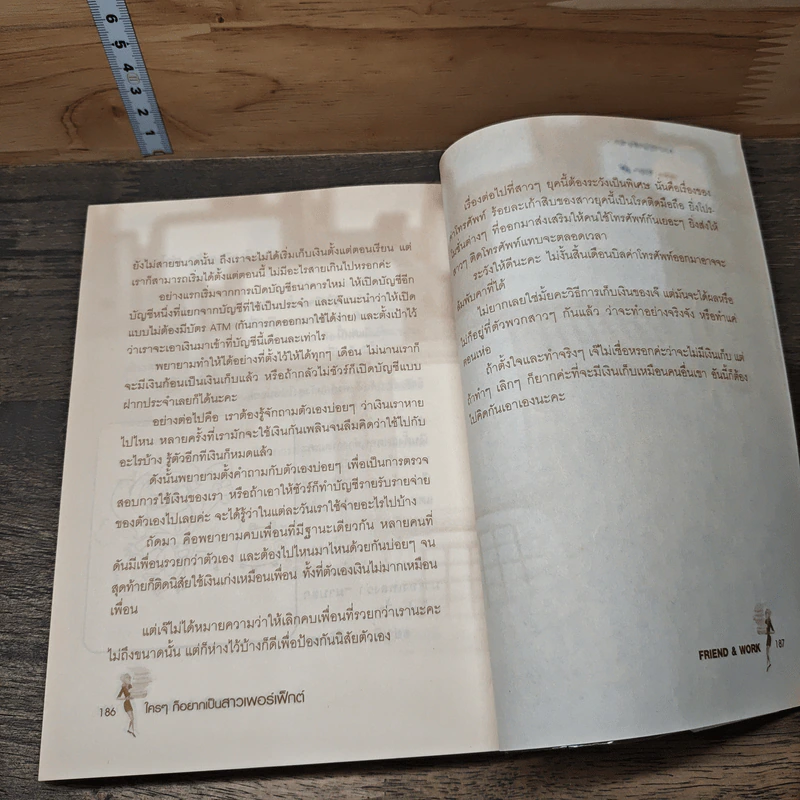 6
5
4
3
2
1
ยังไม่สายขนาดนั้น ถึงเราจะไม่ได้เริ่มเก็บเงินตั้งแต่ตอนเรียน แต่
เราก็สามารถเริ่มได้ตั้งแต่ตอนนี้ ไม่มีอะไรสายเกินไปหรอกค่ะ
อย่างแรกเริ่มจากการเปิดบัญชีธนาคารใหม่ ให้เปิดบัญชีอีก
บัญชีหนึ่งที่แยกจากบัญชีที่ใช้เป็นประจำ และเจ๊แนะนำว่าให้เปิด
แบบไม่ต้องมีบัตร ATM (กันการกดออกมาใช้ได้ง่าย) และตั้งเป้าไว้
ว่าเราจะเอาเงินมาเข้าที่บัญชีนี้เดือนละเท่าไร
พยายามทำให้ได้อย่างที่ตั้งไว้ให้ได้ทุกๆ เดือน ไม่นานเราก็
จะมีเงินก้อนเป็นเงินเก็บแล้ว หรือถ้ากลัวไม่ชัวร์ก็เปิดบัญชีแบบ
ฝากประจำเลยก็ได้นะคะ
อย่างต่อไปคือ เราต้องรู้จักถามตัวเองบ่อยๆ ว่าเงินเราหาย
ไปไหน หลายครั้งที่เรามักจะใช้เงินกันเพลินจนลืมคิดว่าใช้ไปกับ
อะไรบ้าง รู้ตัวอีกทีเงินก็หมดแล้ว
ดังนั้นพยายามตั้งคำถามกับตัวเองบ่อยๆ เพื่อเป็นการตรวจ
สอบการใช้เงินของเรา หรือถ้าเอาให้ชัวร์ก็ทำบัญชีรายรับรายจ่าย
ของตัวเองไปเลยค่ะ จะได้รู้ว่าในแต่ละวันเราใช้จ่ายอะไรไปบ้าง
ถัดมา คือพยายามคบเพื่อนที่มีฐานะเดียวกัน หลายคนที่
ดันมีเพื่อนรวยกว่าตัวเอง และต้องไปไหนมาไหนด้วยกันบ่อยๆ จน
สุดท้ายก็ติดนิสัยใช้เงินเก่งเหมือนเพื่อน ทั้งที่ตัวเองเงินไม่มากเหมือน
เพื่อน
แต่เจ๊ไม่ได้หมายความว่าให้เลิกคบเพื่อนที่รวยกว่าเรานะคะ
ไม่ถึงขนาดนั้น แต่ก็ห่างไว้บ้างก็ดีเพื่อป้องกันนิสัยตัวเอง
186 ใครๆ ก็อยากเป็นสาวเพอร์เฟ็กต์
เรื่องต่อไปที่สาวๆ ยุคนี้ต้องระวังเป็นพิเศษ นั่นคือเรื่องของ
ค่าโทรศัพท์ ร้อยละเก้าสิบของสาวยุคนี้เป็นโรคติดมือถือ ยิ่งโปร-
โมชั่นต่างๆ ที่ออกมาส่งเสริมให้คนใช้โทรศัพท์กันเยอะๆ ยิ่งส่งให้
สาวๆ ติดโทรศัพท์แทบจะตลอดเวลา
ระวังให้ดีนะคะ ไม่งั้นสิ้นเดือนบิลค่าโทรศัพท์ออกมาอาจจะ
ล้มพับคาที่ได้
ไม่ยากเลยใช่มั้ยคะวิธีการเก็บเงินของเจ๊ แต่มันจะได้ผลหรือ
ไม่ก็อยู่ที่ตัวพวกสาวๆ กันแล้ว ว่าจะทำอย่างจริงจัง หรือทำแค่
ตอนเห่อ
ถ้าตั้งใจและทำจริงๆ เจ๊ไม่เชื่อหรอกค่ะว่าจะไม่มีเงินเก็บ แต่
ถ้าทำๆ เลิกๆ ก็ยากค่ะที่จะมีเงินเก็บเหมือนคนอื่นเขา อันนี้ก็ต้อง
ไปคิดกันเอาเองนะคะ
FRIEND & WORK 187